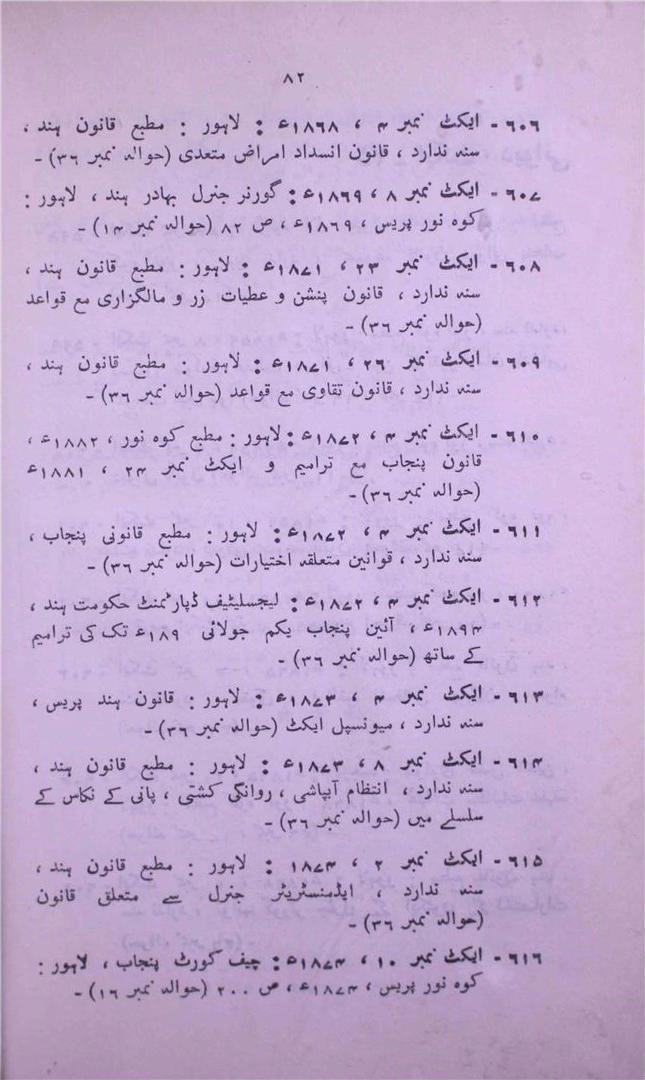 ۸۲
۶۰۶ - ایکٹ نمبر ۴ ، ۱۸۶۸ء : لاہور : مطبع قانون ہند ،
سنہ ندارد ، قانون انسداد امراض متعدی (حوالہ نمبر ۳۶) -
۶۰۷ - ایکٹ نمبر ۸ ، ۱۸۶۹ء : گورنر جنرل بہادر ہند ، لاہور :
کوہ نور پریس ، ۱۸۶۹ء ، ص ۸۲ (حوالہ نمبر ۱۴) -
۶۰۸ - ایکٹ نمبر ۲۳ ، ۱۸۷۱ء : لاہور : مطبع قانون ہند ،
سنہ ندارد ، قانون پنشن و عطیات زر و مالگزاری مع قواعد
(حوالہ نمبر ۳۶) -
۶۰۹ - ایکٹ نمبر ۲۶ ، ۱۸۷۱ء : لاہور : مطبع قانون ہند ،
سنہ ندارد ، قانون تقاوی مع قواعد (حوالہ نمبر ۳۶) -
۶۱۰ - ایکٹ نمبر ۴ ، ۱۸۷۲ء : لاہور : مطبع کوہ نور ، ۱۸۸۲ء ،
قانون پنجاب مع ترامیم و ایکٹ نمبر ۲۴ ، ۱۸۸۱ء
(حوالہ نمبر ۳۶) -
۶۱۱ - ایکٹ نمبر ۴ ، ۱۸۷۲ء : لاہور : مطبع قانونی پنجاب ،
سنہ ندارد ، قوانین متعلقہ اختیارات (حوالہ نمبر ۳۶) -
۶۱۲ - ایکٹ نمبر ۴ ، ۱۸۷۲ء : لیجسلیٹیف ڈپارٹمنٹ حکومت ہند ،
۱۸۹۴ء ، آئین پنجاب یکم جولائی ۱۸۹ء تک کی ترامیم
کے ساتھ (حوالہ نمبر ۳۶) -
۶۱۳ - ایکٹ نمبر ۴ ، ۱۸۷۳ء : لاہور : قانون ہند پریس ،
سنہ ندارد ، میونسپل ایکٹ (حوالہ نمبر ۳۶) -
۶۱۴ - ایکٹ نمبر ۸ ، ۱۸۷۳ء : لاہور : مطبع قانون ہند ،
سنہ ندارد ، انتظام آبپاشی ، روانگی کشتی ، پانی کے نکاس کے
سلسلے میں (حوالہ نمبر ۳۶) -
۶۱۵ - ایکٹ نمبر ۲ ، ۱۸۷۴ : لاہور : مطبع قانون ہند ،
سنہ ندارد ، ایڈمنسٹریٹر جنرل سے متعلق قانون
(حوالہ نمبر ۳۶) -
۶۱۶ - ایکٹ نمبر ۱۰ ، ۱۸۷۴ء : چیف کورٹ پنجاب ، لاہور :
کوہ نور پریس ، ۱۸۷۴ء ، ص ۲۰۰ (حوالہ نمبر ۱۶) -